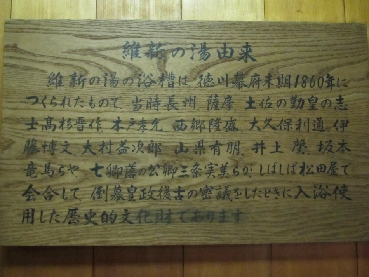 維新の湯由来
維新の湯の浴槽は、徳川幕府末期1860年に
つくられたもので、当時長州、薩摩、土佐の勤皇の志
士高杉晋作、木戸孝允、西郷隆盛、大久保利通、伊
藤博文、大村益次郎、山県有朋、井上馨、坂本
竜馬らや、七卿落の公卿三条実美らが、しばしば松田屋で
会合して、倒幕皇政復古の密議をしたときに入浴使
用した歴史的文化財であります